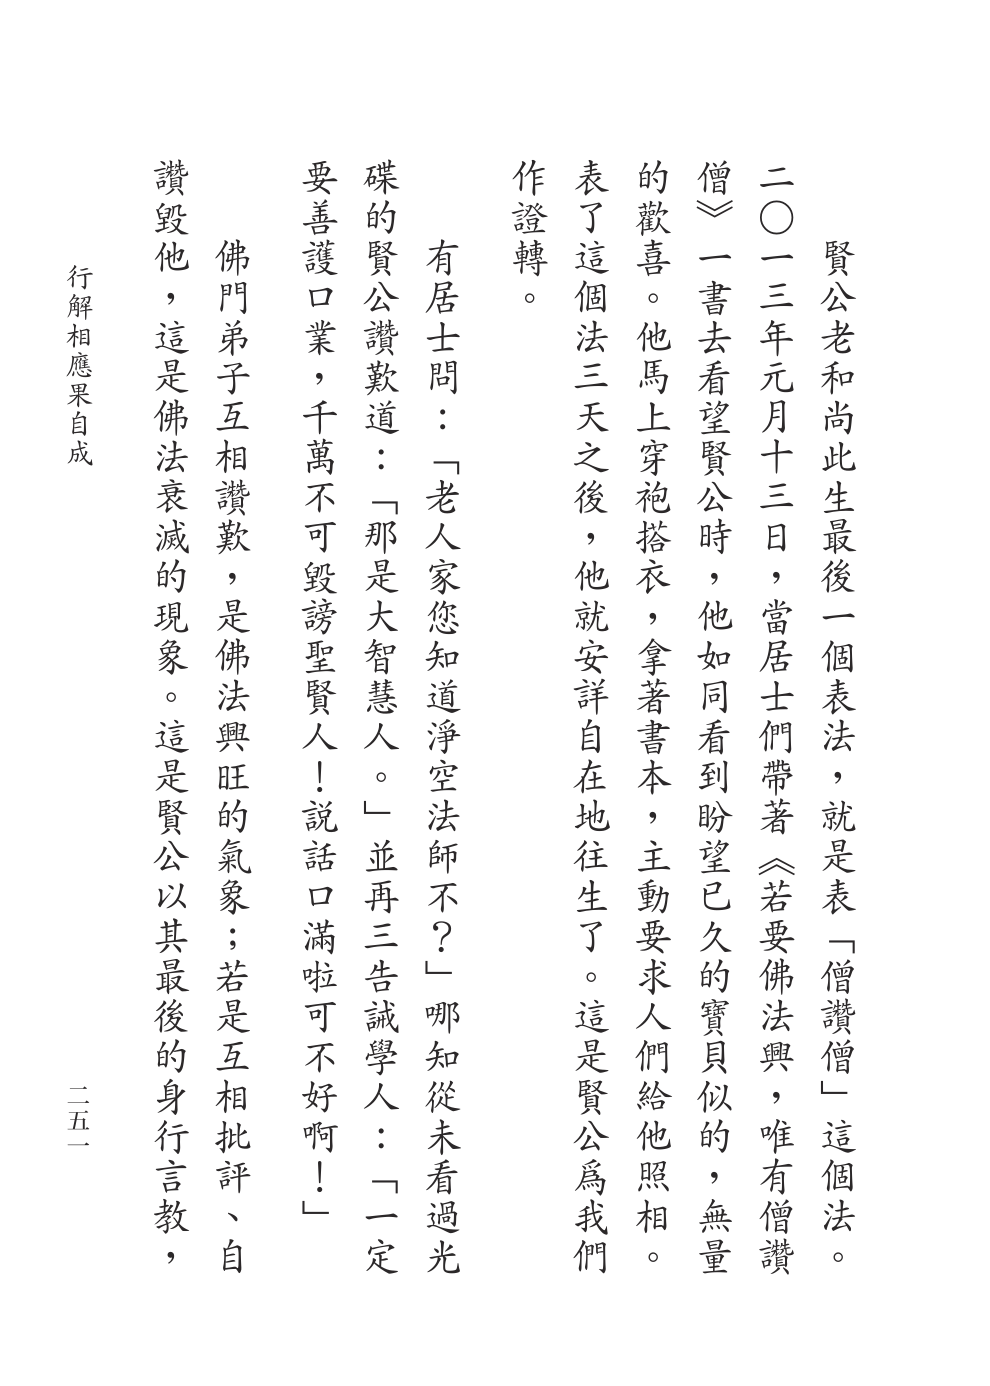 賢公老和尚此生最後一個表法，就是表「僧讚僧」這個法。
二〇一三年元月十三日，當居士們帶著《若要佛法興，唯有僧讚
僧》一書去看望賢公時，他如同看到盼望已久的寶貝似的，無量
的歡喜。他馬上穿袍搭衣，拿著書本，主動要求人們給他照相。
表了這個法三天之後，他就安詳自在地往生了。這是賢公爲我們
作證轉。
有居士問：「老人家您知道淨空法師不？」哪知從未看過光
碟的賢公讚歎道：「那是大智慧人。」並再三告誡學人：「一定
要善護口業，千萬不可毀謗聖賢人！説話口滿啦可不好啊！」
佛門弟子互相讚歎，是佛法興旺的氣象；若是互相批評、自
讚毀他，這是佛法衰滅的現象。這是賢公以其最後的身行言教，
行解相應果自成
二五一